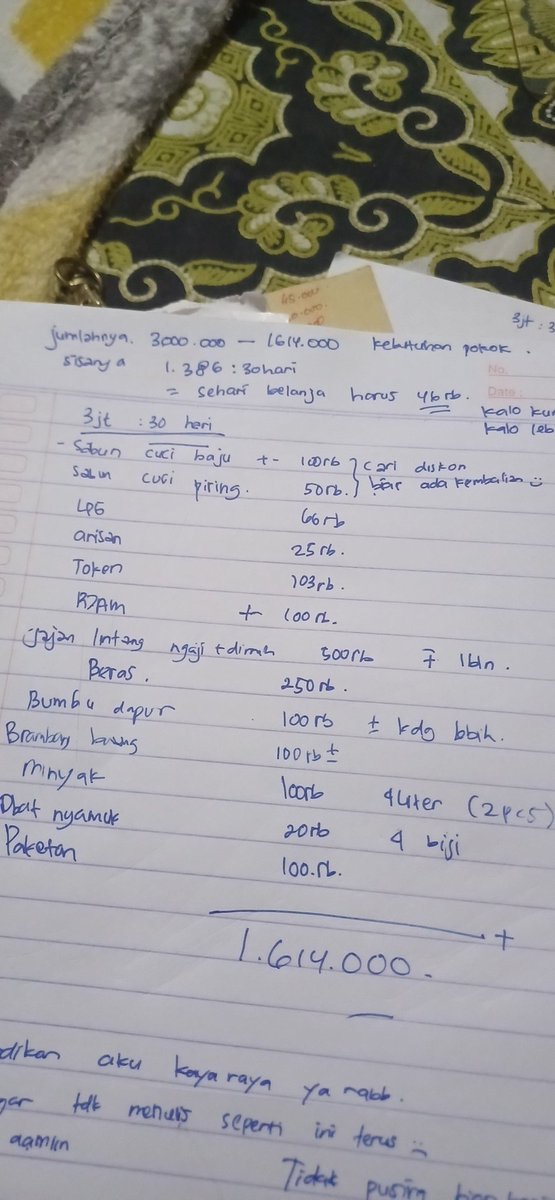 45.000
3jt : 3
jumlahnya. 3000.000 — 1614.000 kebutuhan pokok.
No.
sisanya 1.386 : 30hari
Date:
= sehari belanja harus 46rb.
kalo kur
kalo leb
3jt : 30 hari
- Sabun cuci baju +- 100rb } cari diskon
Sabun cuci piring. 50rb. } biar ada kembalian
LPG 66rb
arisan 25rb.
Token 103rb.
PDAM +- 100rb.
jajan Intang ngaji + dirmh 500rb ∓ 1bln.
Beras. 250rb.
Bumbu dapur 100rb ± kdg lbih.
100rb ±
Minyak 100rb 4 Liter (2pcs)
Obat nyamuk 20rb 4 biji
Paketan 100.rb.
+
1.614.000.
dikan aku kaya raya ya rabb.
gar tdk menulis seperti ini terus
aamiin
Tidak pusing